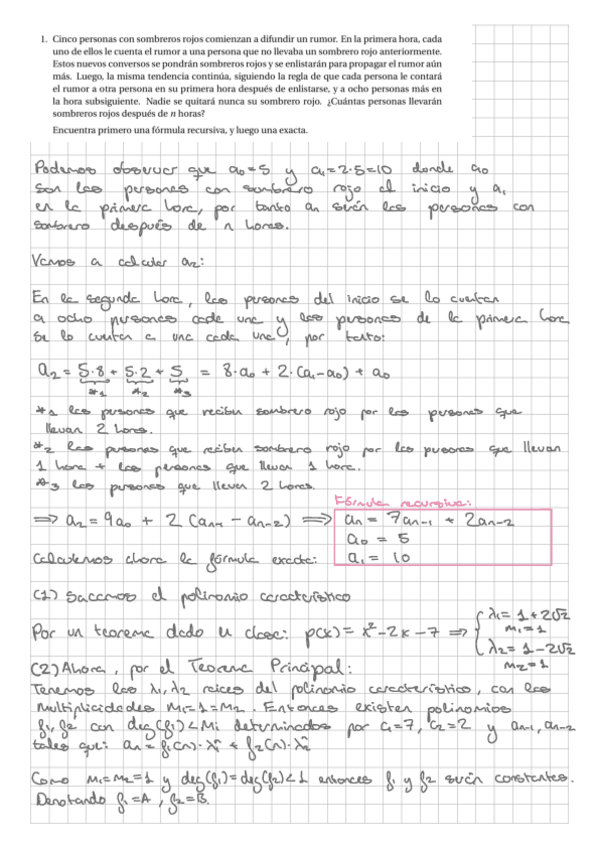 1. Cinco personas con sombreros rojos comienzan a difundir un rumor. En la primera hora, cada
uno de ellos le cuenta el rumor a una persona que no llevaba un sombrero rojo anteriormente.
Estos nuevos conversos se pondrán sombreros rojos y se enlistarán para propagar el rumor aún
más. Luego, la misma tendencia continúa, siguiendo la regla de que cada persona le contará
el rumor a otra persona en su primera hora después de enlistarse, y a ocho personas más en
la hora subsiguiente. Nadie se quitará nunca su sombrero rojo. ¿Cuántas personas llevarán
sombreros rojos después de n horas?
Encuentra primero una fórmula recursiva, y luego una exacta.
Podemos observar que a₀=5 y a₁=2·5=10 donde a₀
son las personas con sombrero rojo al inicio y a₁
en la primera hora, por tanto an serán las personas con
sombrero después de n horas.
Vamos a calcular a₂:
En la segunda hora, las personas del inicio se lo cuentan
a ocho personas cada una y las personas de la primera hora
se lo cuentan a una cada una, por tanto:
a₂ = 5·8 + 5·2 + 5 = 8·a₀ + 2·(a₁-a₀) + a₀
*1 *2 *3
*1 las personas que reciben sombrero rojo por las personas que
llevan 2 horas.
*2 las personas que reciben sombrero rojo por las personas que llevan
1 hora + las personas que llevan 1 hora.
*3 las personas que llevan 2 horas.
Fórmula recursiva:
⟹ a₂ = 9a₀ + 2(an-1 - an-2) ⟹ an = 7an-1 + 2an-2
a₀ = 5
a₁ = 10
Calculemos ahora la fórmula exacta:
(1) Sacamos el polinomio característico
Por un teorema dado en clase: p(x) = x²-2x-7 ⟹ { λ₁ = 1+2√2
m₁=1
λ₂ = 1-2√2
m₂=1
(2) Ahora, por el Teorema Principal:
Tenemos las λ₁,λ₂ raíces del polinomio característico, con las
multiplicidades m₁=1=m₂. Entonces existen polinomios
f₁,f₂ con deg(fi)<mi determinados por c₁=7, c₂=2 y an-1, an-2
tales que: an = f₁(n)·λ₁ⁿ + f₂(n)·λ₂ⁿ
Como m₁=m₂=1 y deg(f₁)=deg(f₂)<1 entonces f₁ y f₂ serán constantes.
Denotando f₁=A, f₂=B.